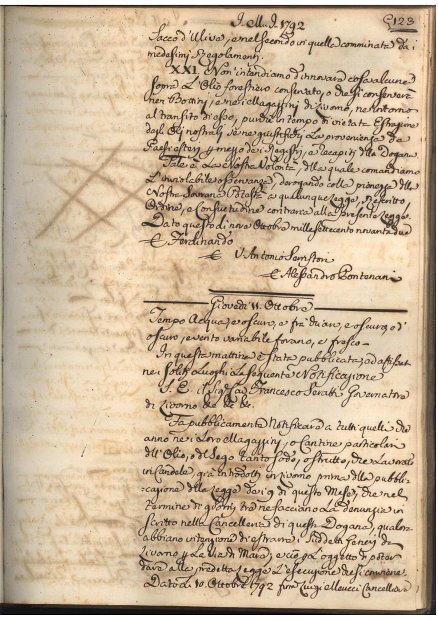 J. M. J. 1792
123
Sacco d'Ulive, e nel secondo in quella comminata dai
medesimi Regolamenti.
XXI. Non intendiamo d'innovare cosa alcuna
sopra l'Olio forestiero conservato, o da conservarsi
nei Bottini, e nei Magazzini di Livorno, nè intorno
al transito di esso, purchè in tempo di vietata Estrazione
degli Olj nostrali, se ne giustifichi la provenienza da
Paesi esteri p mezzo dei Registri, e recapiti della Dogana.
Tale è la Nostra Volontà, della quale comandiamo
l'inviolabile osservanza, derogando colla pienezza della
Nostra Sovrana Potestà a qualunque Legge, ed
Ordine, e Consuetudine contraria alla presente Legge.
Dato questo di nove Ottobre mille settecento novantadue
Ferdinando
V. Antonio Serristori
Alessandro Pontenani
Giovedi 11. Ottobre
Tempo Acqua, e oscuro, e
oscuro, e vento variabile forano, e fresco
In questa mattina è stata pubblicata, ed affissa
nei soliti Luoghi la seguente Notificazione
S. E. il Sig. Francesco Seratti Governatore
di Livorno &c. &c. &c.
Fa pubblicamente Notificare a tutti quelli che
anno nei Loro Magazzini, o Cantine particolari
dell'Olio, o del Sego tanto sodo, o strutto, che lavorato
in Candele, già introdotti in Livorno prima della pubbli-
cazione della Legge dei 9 di questo Mese, che nel
termine di giorni tre ne facciano la denunzia in
scritto nella Cancelleria di questa Dogana, qualora
abbiano intenzione di estrarre i suddetti Generi da
Livorno p la via di Mare, e ciò p l'oggetto di poter
dare alla predetta Legge l'esecuzione che si conviene.
Dato li 10. Ottobre 1792 Luigi Cancelliere